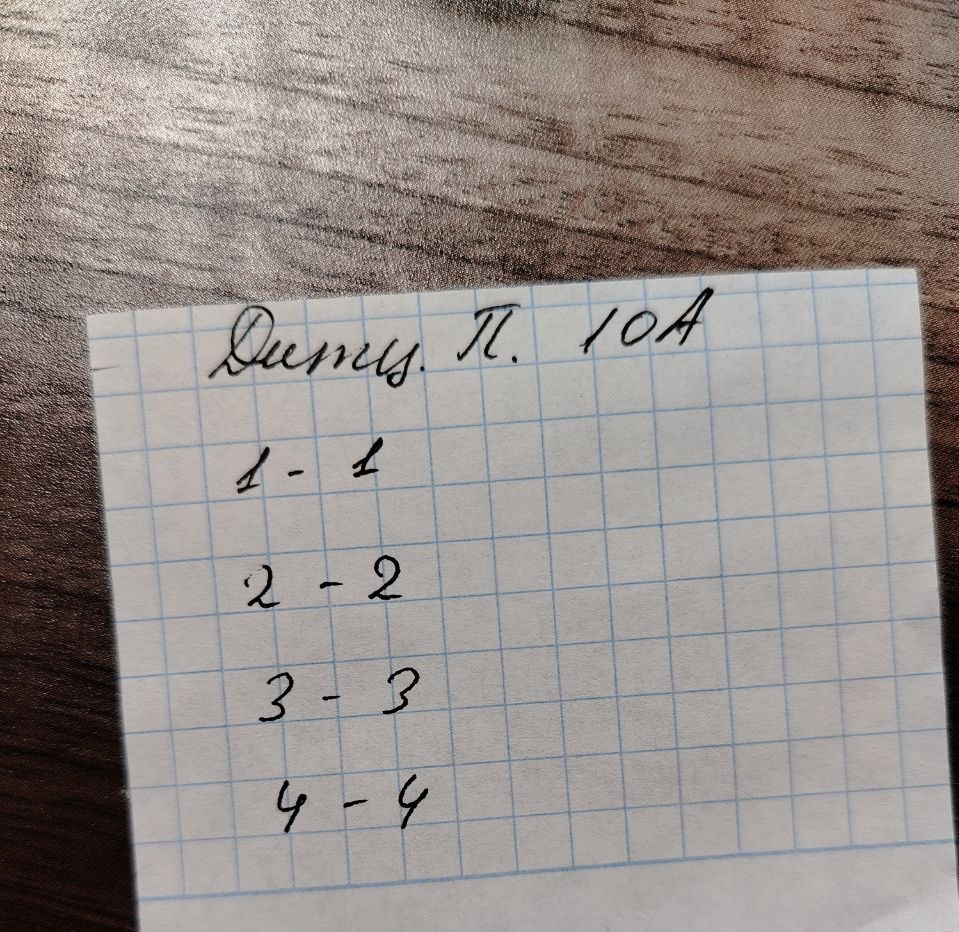 Дитц. П. 10А
1 - 1
2 - 2
3 - 3
4 - 4